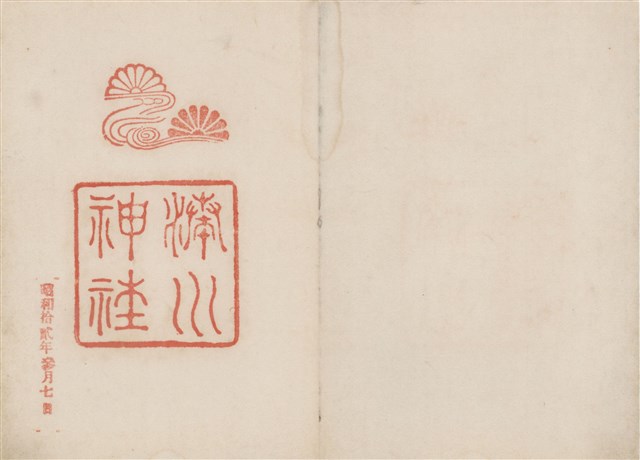 湊川
神社
昭和拾貳年參月七日